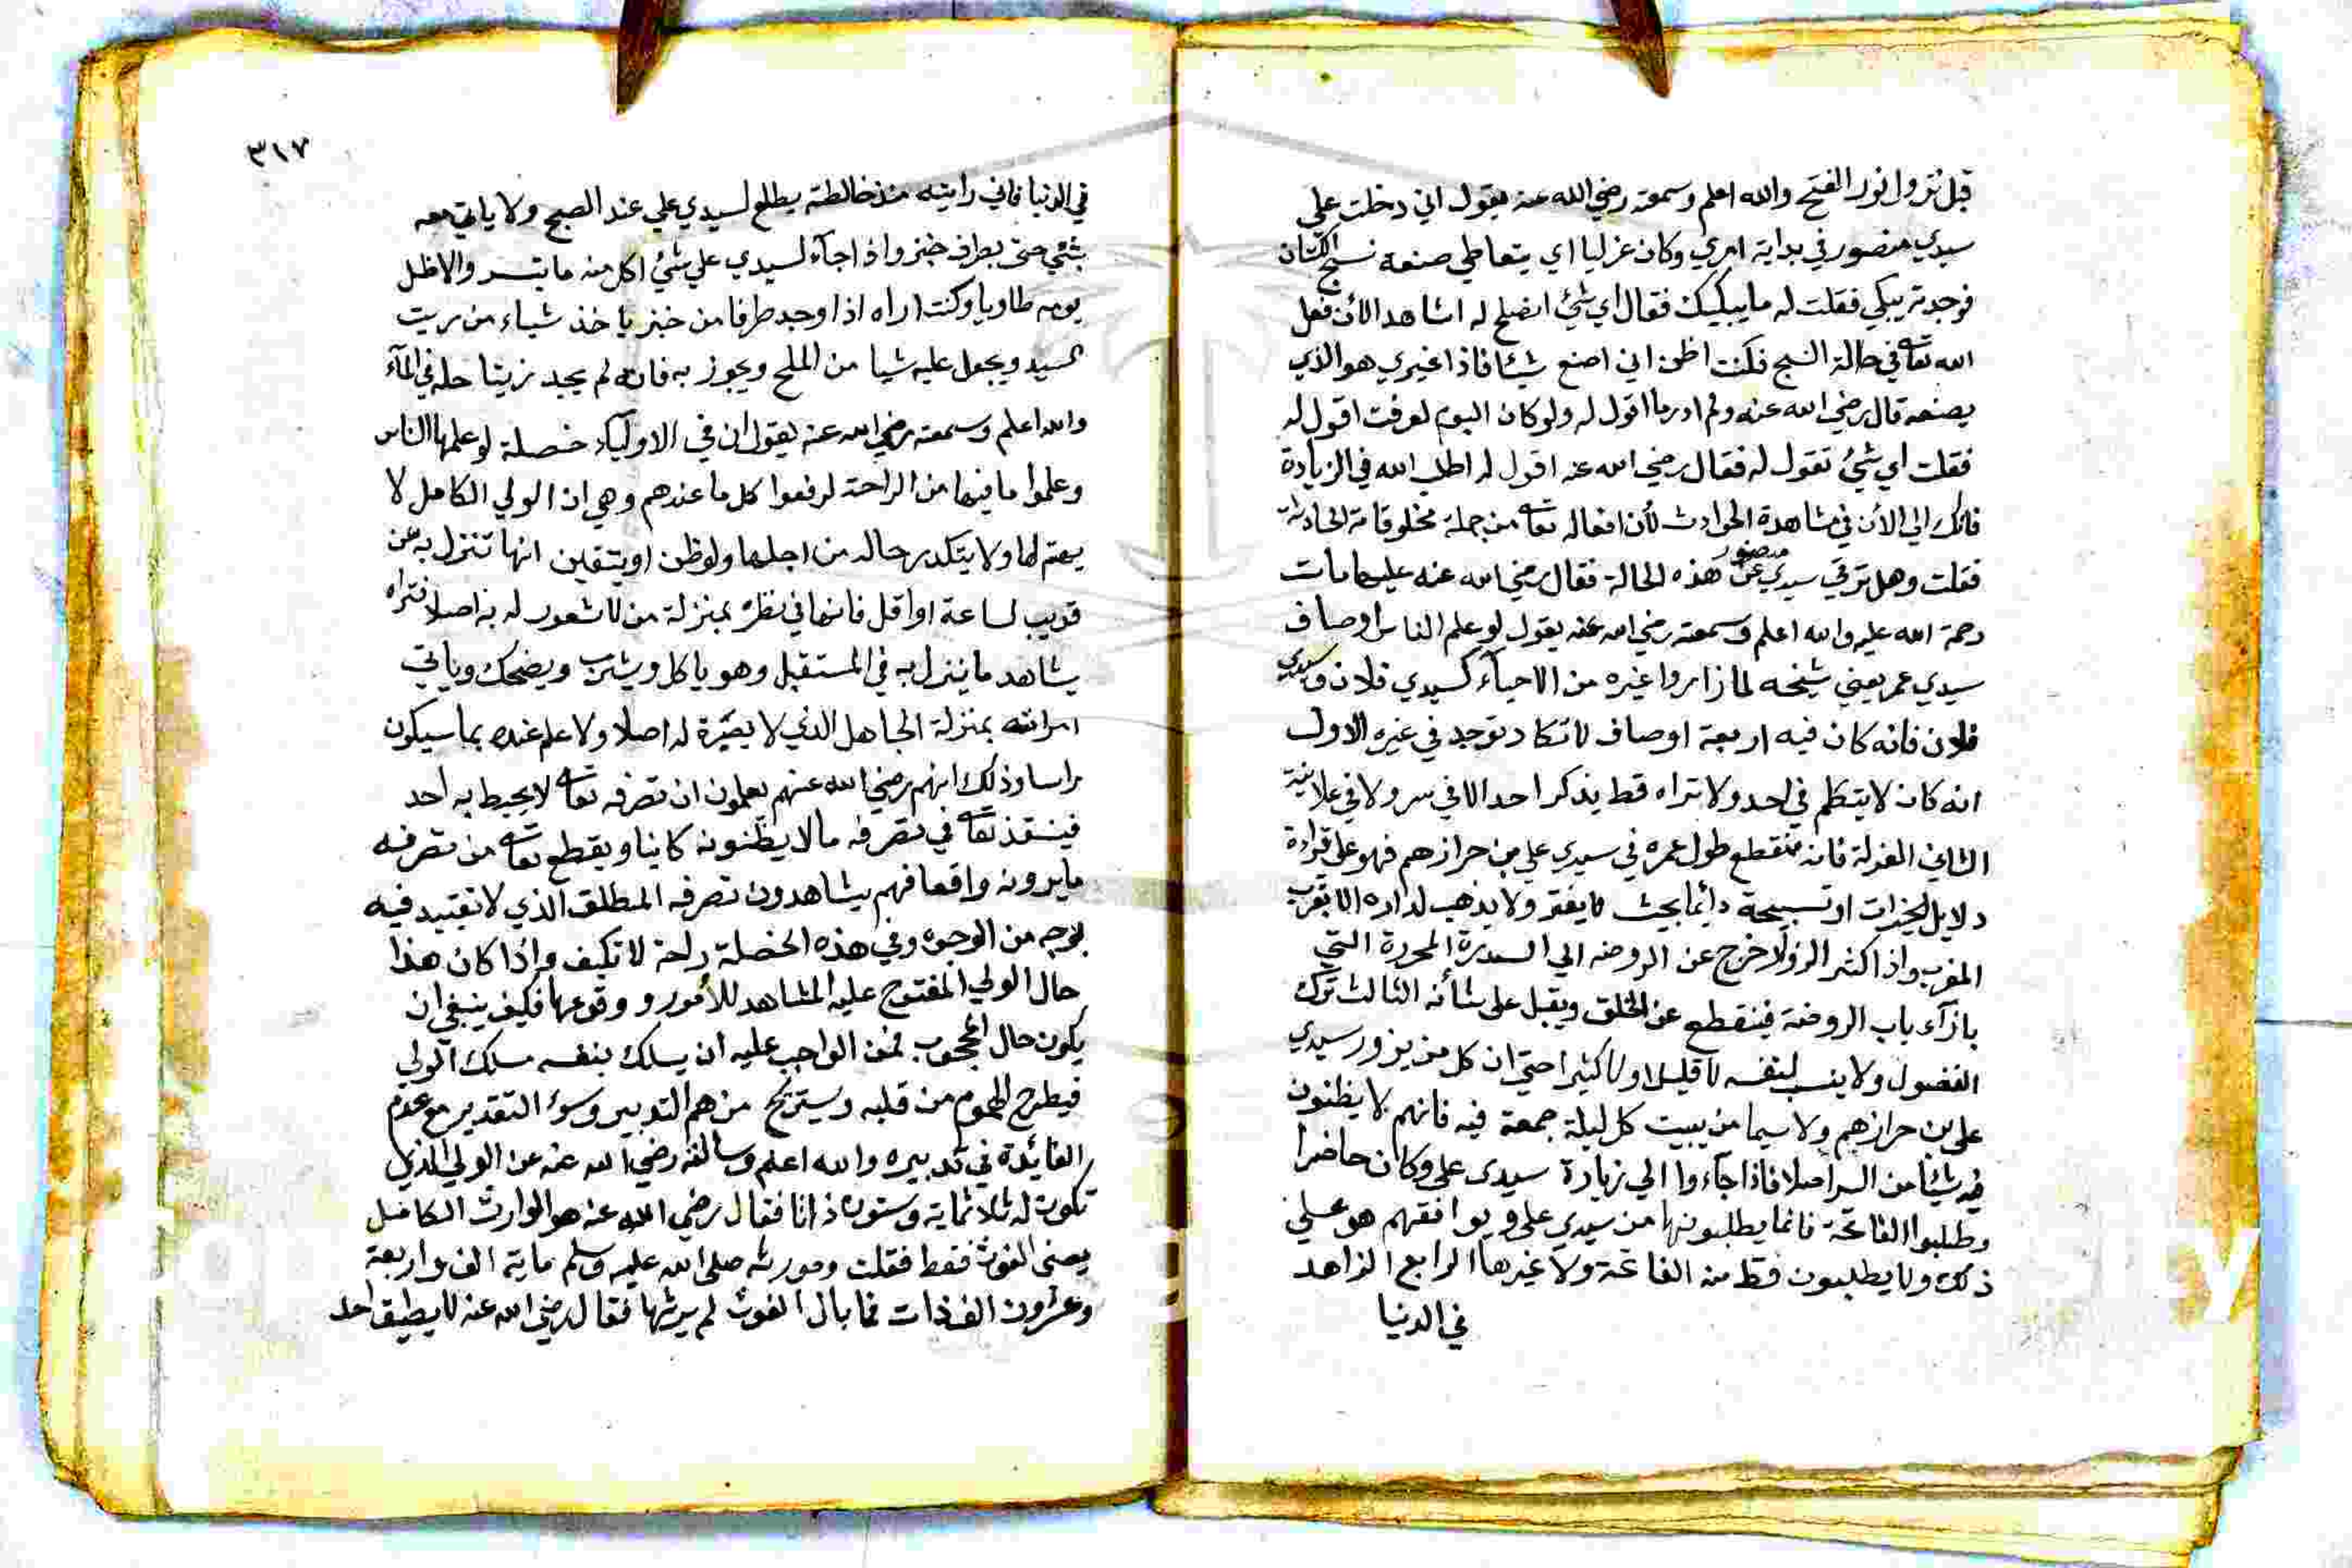 قبل نزوا نور الفتح والله اعلم وسمعته رضي الله عنه يقول اني دخلت علي
سيدي منصور في بداية امري وكان غزليا اي يتعاطي صنعة نسج الكتان
فوجدته يبكي فقلت له ما يبكيك فقال اي شئ اصلح له اشاهد الأن فعل
الله تعالى في حالة النسج فكنت اظن اني اصنع شيئا فاذا غيري هو الذي
يصنعه قال رضي الله عنه ولم ادر ما اقول له ولو كان اليوم لعرفت اقول له
فقلت اي شئ تقول له فقال رضي الله عنه اقول له اطلب الله في الزيادة
فانك الي الأن في مشاهدة الحوادث لأن افعاله تعالى من جملة مخلوقاته الحادثة
فقلت وهل ترقي سيدي منصور عن هذه الحالة فقال رضي الله عنه عليها مات
رحمة الله عليه والله اعلم وسمعته رضي الله عنه يقول لو علم الناس اوصاف
سيدي عمر يعني شيخه لما زاروا غيره من الاحيآء كسيدي فلان وسيدي
فلان فانه كان فيه اربعة اوصاف لا تكاد توجد في غيره الاول
انه كان لا يتكلم في احد ولا تراه قط يذكر احدا لا في سر ولا في علانية
الثاني العزلة فانه منقطع طول عمره في سيدي علي بن حرازهم فهو علي قراءة
دلايل الخيرات او تسبيحة دائما بحيث لا يفتر ولا يذهب لداره الا بقرب
المغرب واذا كثر الزوار خرج عن الروضه الي السدرة المحررة التي
بازآء باب الروضة فينقطع عن الخلق ويقبل علي شأنه الثالث ترك
الفضول ولا ينسب لنفسه لا قليلا ولا كثيرا حتي ان كل من يزور سيدي
علي بن حرازهم ولا سيما من يبيت كل ليلة جمعة فيه فانهم لا يظنون
فيه شيئا من السر اصلا فاذا جآءوا الي زيارة سيدي علي وكان حاضرا
وطلبوا الفاتحة فانما يطلبونها من سيدي علي ويوافقهم هو علي
ذلك ولا يطلبون قط منه الفاتحة ولا غيرها الرابع الزاهد
في الدنيا
٣١٧
في الدنيا فاني رايته منذ خالطته يطلع لسيدي علي عند الصبح ولا ياتي معه
بشئ حتي بطرف خبز واذا جآء لسيدي علي شئ اكل منه ما يتسر والا ظل
يومه طاويا وكنت اراه اذا وجد طرفا من خبز ياخذ شياء من زيت
السيد ويجعل عليه شيا من الملح ويجوز به فان لم يجد زيتا حله في المآء
والله اعلم وسمعته رضي الله عنه يقول ان في الاوليآء خصلة لو علمها الناس
وعلموا ما فيها من الراحة لرفعوا كل ما عندهم وهي ان الولي الكامل لا
يهتم لها ولا يتكدر حاله من اجلها ولو ظن او يتقين انها تنزل به عن
قريب لساعة او اقل فانها في نظره بمنزلة من لا شعور له به اصلا فتراه
يشاهد ما ينزل به في المستقبل وهو ياكل ويشرب ويضحك وياتي
امراته بمنزلة الجاهل الذي لا بصيرة له اصلا ولا علم عنده بما سيكون
راسا وذلك انهم رضي الله عنهم يعلمون ان تصرفه تعالى لا يحيط به احد
فينفذ تعالى في تصرفه ما لا يظنونه كاينا ويقطع تعالى من تصرفه
ما يرونه واقعا فهم يشاهدون تصرفه المطلق الذي لا تقييد فيه
بوجه من الوجوه وفي هذه الخصلة راحة لا تكيف واذا كان هذا
حال الولي المفتوح عليه المشاهد للأمور ووقوعها فكيف ينبغي ان
يكون حال المحجوب فمن الواجب عليه ان يسلك بنفسه مسلك الولي
فيطرح الهموم من قلبه ويستريح من هم التدبير وسوء التقدير مع عدم
الفايدة في تدبيره والله اعلم وسالته رضي الله عنه عن الولي الذي
تكون له ثلاثماية وستون ذاتا فقال رضي الله عنه هو الوارث الكامل
يعني الغوث فقط فقلت وموروثه صلى الله عليه وسلم ماية الف واربعة
وعشرون الف ذات فما بال الغوث لم يرثها فقال رضي الله عنه لا يطيق احد